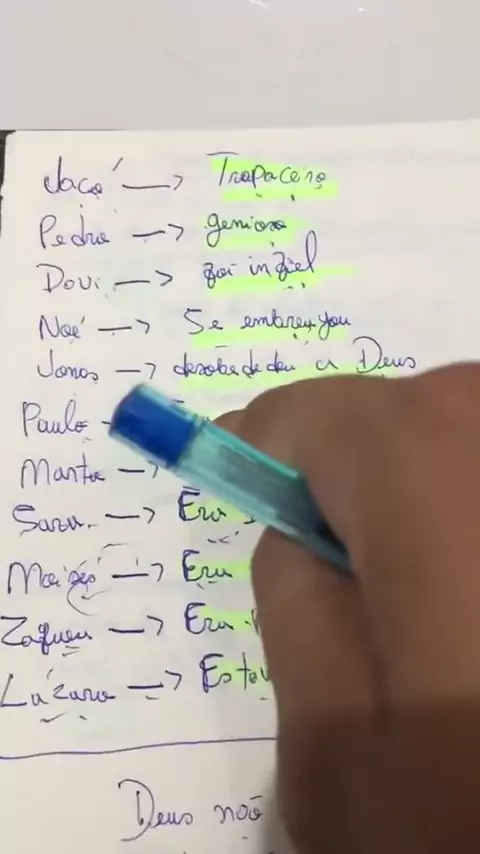 Jacó → Trapacero
Pedro → genioso
Davi → foi infiel
Noé → Se embreagou
Jonas → desobedeceu a Deus
Paulo
Marta →
Sara → Era
Moisés → Era
Zaqueu → Era
Lázaro →
Deus não